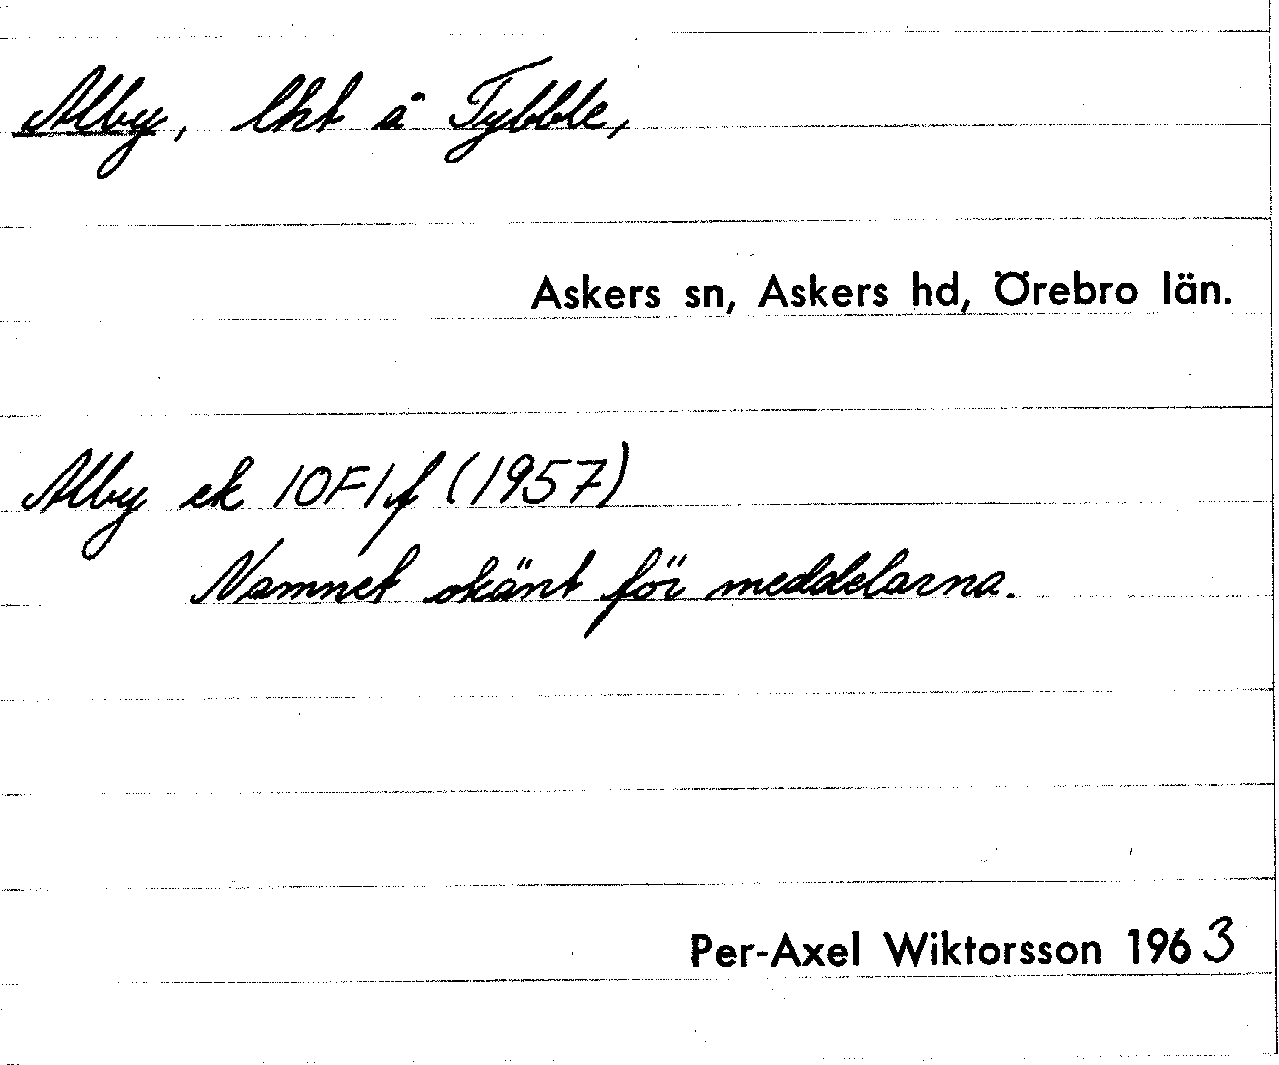 Alby, lht å Tybble,
Askers sn, Askers hd, Örebro län.
Alby ek 10F1f (1957)
Namnet okänt för meddelarna.
Per-Axel Wiktorsson 1963